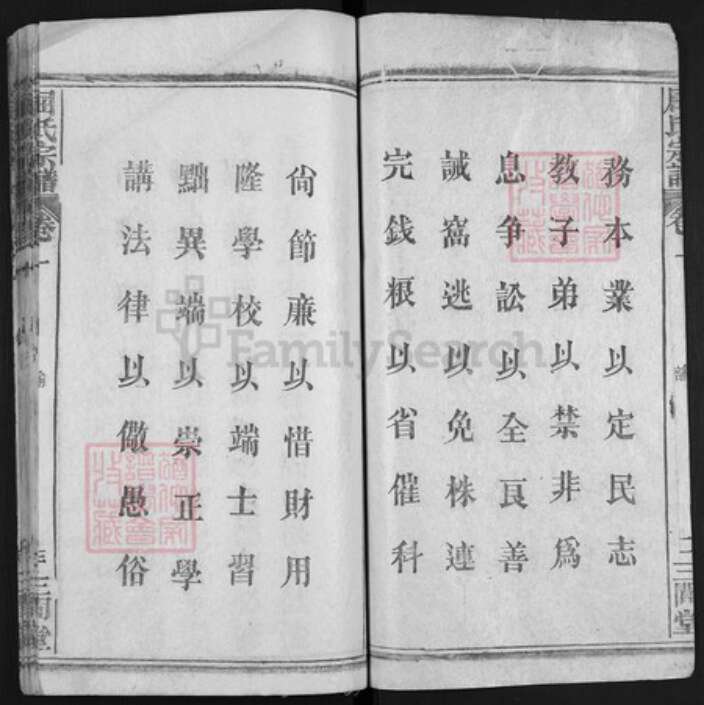 務本業以定民志
教子弟以禁非為
息争訟以全良善
誡窩逃以免株連
完錢粮以省催科
尙節亷以惜財用
隆學校以端士習
黜異端以崇正學
講法律以儆愚俗
屈氏宗譜
卷一
三閭堂
FamilySearch